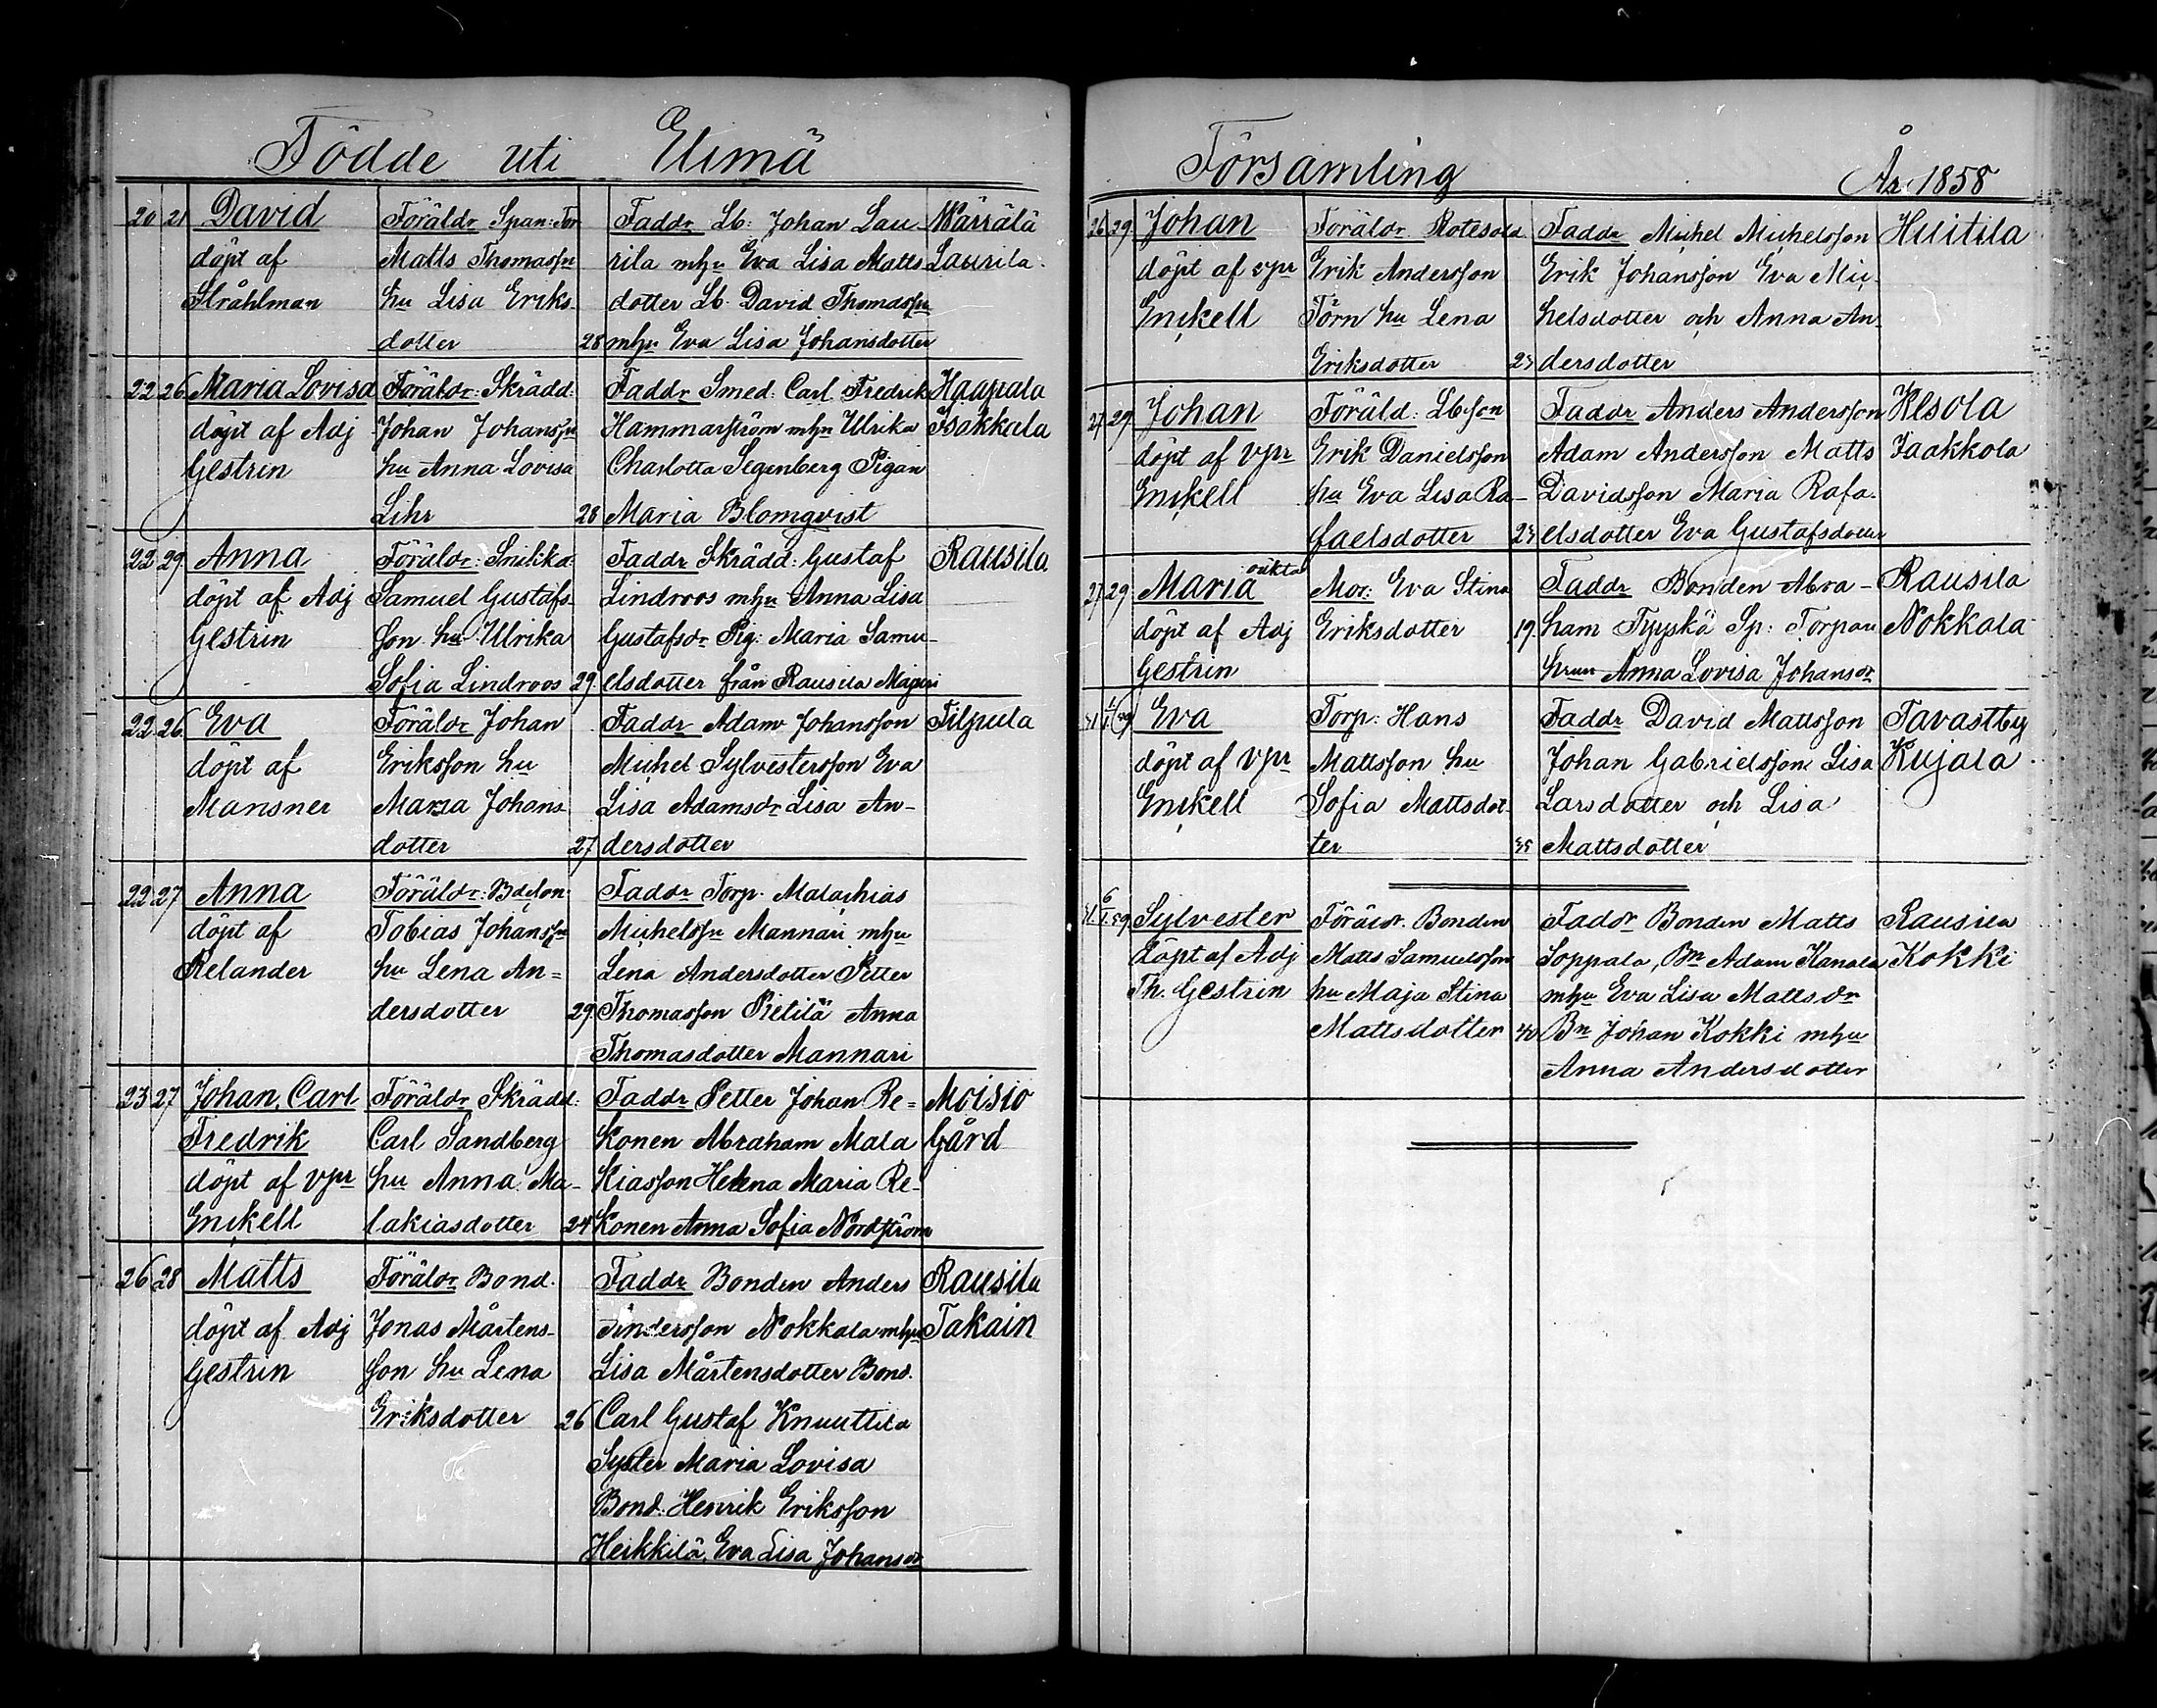 Födde uti Elimä
20 21 David Föräldr Span: Tor Faddr Lb: Johan Lau- Wärrälä
döpt af Matts Thomasson rila mhu Eva Lisa Matts Laurila
Stråhlman hu Lisa Eriks dotter Lb: David Thomasson
dotter 28 mhu Eva Lisa Johansdotter
22 26 Maria Lovisa Föräldr: Skrädd: Faddr Smed: Carl Fredrik Haapala
döpt af Adj Johan Johansson Hammarström mhu Ulrika Isakkala
Gestrin hu Anna Lovisa Charlotta Segenberg Pigan
Lihr 28 Maria Blomqvist
22 29 Anna Föräldr: Faddr Skrädd: Gustaf Rausila
döpt af Adj Samuel Gustafs Lindroos mhu Anna Lisa
Gestrin son hu Ulrika Gustafsdr Pig: Maria Samu-
Sofia Lindroos 29 elsdotter från Rausila
22 26 Eva Föräldr Johan Faddr Adam Johansson Filpula
döpt af Eriksson hu Michel Sylvestersson Eva
Mansner Maria Johans Lisa Adamsdr Lisa An-
dotter 27 dersdotter
22 27 Anna Föräldr: Bdeson Faddr Torp. Malachias
döpt af Tobias Johansson Michelsson Mannari mhu
Relander hu Lena An= Lena Andersdotter Petter
dersdotter 29 Thomasson Pietilä Anna
Thomasdotter Mannari
23 27 Johan Carl Föräldr Skrädd: Faddr Petter Johan Re= Moisio
Fredrik Carl Sandberg konen Abraham Mala Gård
döpt af vpr hu Anna Ma- kiasson Helena Maria Re-
Enckell lakiasdotter 24 konen Anna Sofia Nordström
26 28 Matts Föräldr Bond. Faddr Bonden Anders Rausila
döpt af Adj Jonas Mårtens- Andersson Nokkala mhu Takain
Gestrin son hu Lena Lisa Mårtensdotter Bond.
Eriksdotter 26 Carl Gustaf Knuuttila
Syster Maria Lovisa
Bond: Henrik Eriksson
Heikkilä, Eva Lisa Johansdr
Församling År 1858
26 29 Johan Föräldr Rotesold Faddr Michel Michelsson Huitila
döpt af vpr Erik Andersson Erik Johansson Eva Mic-
Enckell Törn hu Lena helsdotter och Anna An-
Eriksdotter 23 dersdotter
27 29 Johan Föräld: Lbson Faddr Anders Andersson Wesola
döpt af vpr Erik Danielsson Adam Andersson Matts Jaakkola
Enckell hu Eva Lisa Ra- Davidsson Maria Rafa-
faelsdotter 23 elsdotter Eva Gustafsdotter
27 29 Maria oäkta Mor: Eva Stina Faddr Bonden Abra- Rausila
döpt af Adj Eriksdotter 19 ham Typpskä Sp: Torparen Nokkala
Gestrin hrun Anna Lovisa Johansdr
31 Eva Torp: Hans Faddr David Mattsson Tavastby
döpt af vpr Mattsson hu Johan Gabrielsson Lisa Kujala
Enckell Sofia Mattsdot Larsdotter och Lisa
ter 35 Mattsdotter
31 6/1.59 Sylvester Föräldr. Bonden Faddr Bonden Matts Rausila
döpt af Adj Matts Samuelsson Soppala, Bn Adam Kanala Kokki
Th. Gestrin hu Maja Stina mhu Eva Lisa Mattsdr
Mattsdotter 40 Bn Johan Kokki mhu
Anna Andersdotter